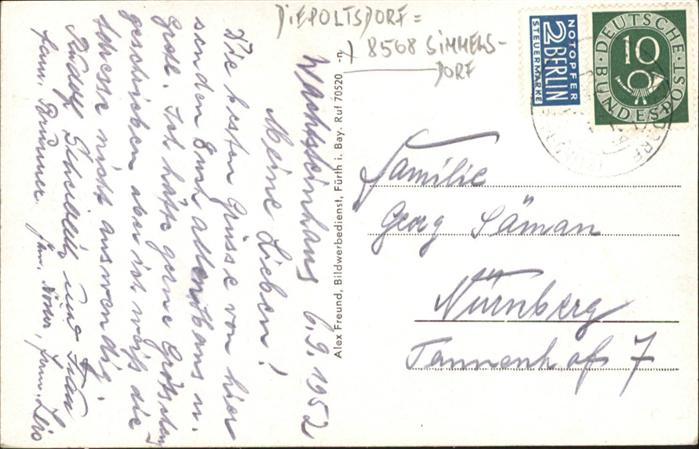 DIEPOLTSDORF =
8568 SIMMELS-
DORF
NOTOPFER
2 BERLIN
STEUERMARKE
DEUTSCHE
10
BUNDESPOST
Wachtsternhaus 6.9.1952
Meine Lieben!
Die besten Grüsse von hier
senden Euch allen Hans u.
Grete. Ich hätte gerne
geschrieben aber ich weiß die
Adresse nicht auswendig.
Rudolf und Frau
Fam. Brunner, Fam.
Alex Freund, Bildwerbedienst, Fürth i. Bay. Ruf 70520
Familie
Georg Säman
Nürnberg
Tannenhof 7